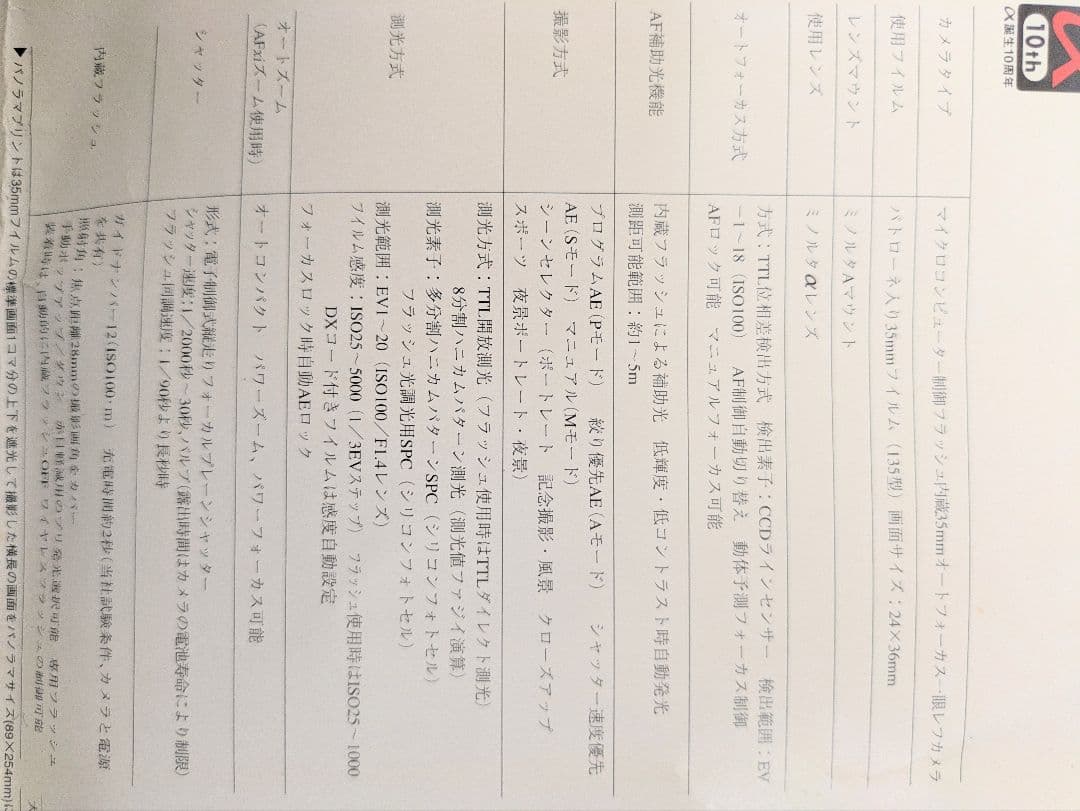 α
10th
α誕生10周年
カメラタイプ
マイクロコンピューター制御フラッシュ内蔵35mmオートフォーカス一眼レフカメラ
使用フイルム
パトローネ入り35mmフイルム（135型） 画面サイズ：24×36mm
レンズマウント
ミノルタAマウント
使用レンズ
ミノルタαレンズ
オートフォーカス方式
方式：TTL位相差検出方式 検出素子：CCDラインセンサー 検出範囲：EV
－1～18（ISO100） AF制御自動切り替え 動体予測フォーカス制御
AFロック可能 マニュアルフォーカス可能
AF補助光機能
内蔵フラッシュによる補助光 低輝度・低コントラスト時自動発光
測距可能範囲：約1～5m
撮影方式
プログラムAE（Pモード） 絞り優先AE（Aモード） シャッター速度優先
AE（Sモード） マニュアル（Mモード）
シーンセレクター（ポートレート 記念撮影・風景 クローズアップ
スポーツ 夜景ポートレート・夜景）
測光方式
測光方式：TTL開放測光（フラッシュ使用時はTTLダイレクト測光）
8分割ハニカムパターン測光（測光値ファジイ演算）
測光素子：多分割ハニカムパターンSPC（シリコンフォトセル）
フラッシュ光調光用SPC（シリコンフォトセル）
測光範囲：EV1～20（ISO100／F1.4レンズ）
フイルム感度：ISO25～5000（1／3EVステップ） フラッシュ使用時はISO25～1000
DXコード付きフイルムは感度自動設定
フォーカスロック時自動AEロック
オートズーム
（AFxiズーム使用時）
オートコンパクト パワーズーム、パワーフォーカス可能
シャッター
形式：電子制御式縦走りフォーカルプレーンシャッター
シャッター速度：1／2000秒～30秒、バルブ（露出時間はカメラの電池寿命により制限）
フラッシュ同調速度：1／90秒より長秒時
内蔵フラッシュ
ガイドナンバー12（ISO100・m） 充電時間約2秒（当社試験条件、カメラと電源
を共有）
照射角：焦点距離28mmの撮影画角をカバー
手動ポップアップ／ダウン 赤目軽減用のプリ発光選択可能 専用フラッシュ
装着時は、自動的に内蔵フラッシュOFF ワイヤレスフラッシュの制御可能
▶パノラマプリントは35mmフイルムの標準画面1コマ分の上下を遮光して撮影した横長の画面をパノラマサイズ（89×254mm）に